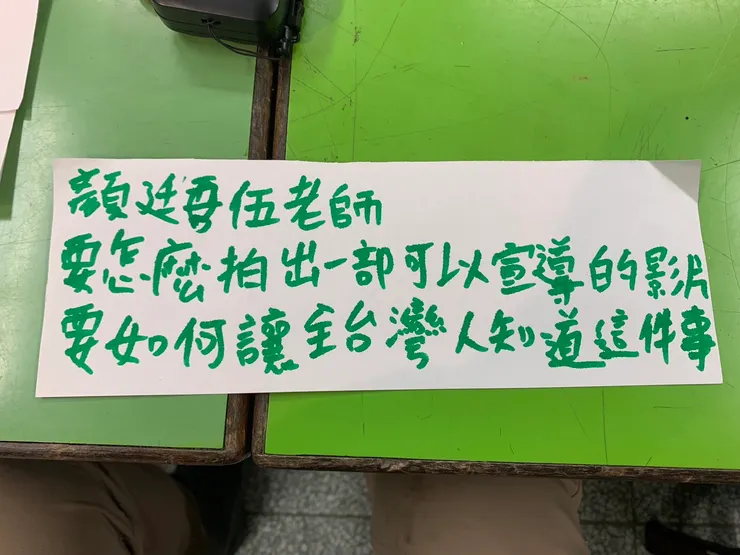 顏廷伍老師
要怎麼拍出一部可以宣導的影片
要如何讓全台灣人知道這件事